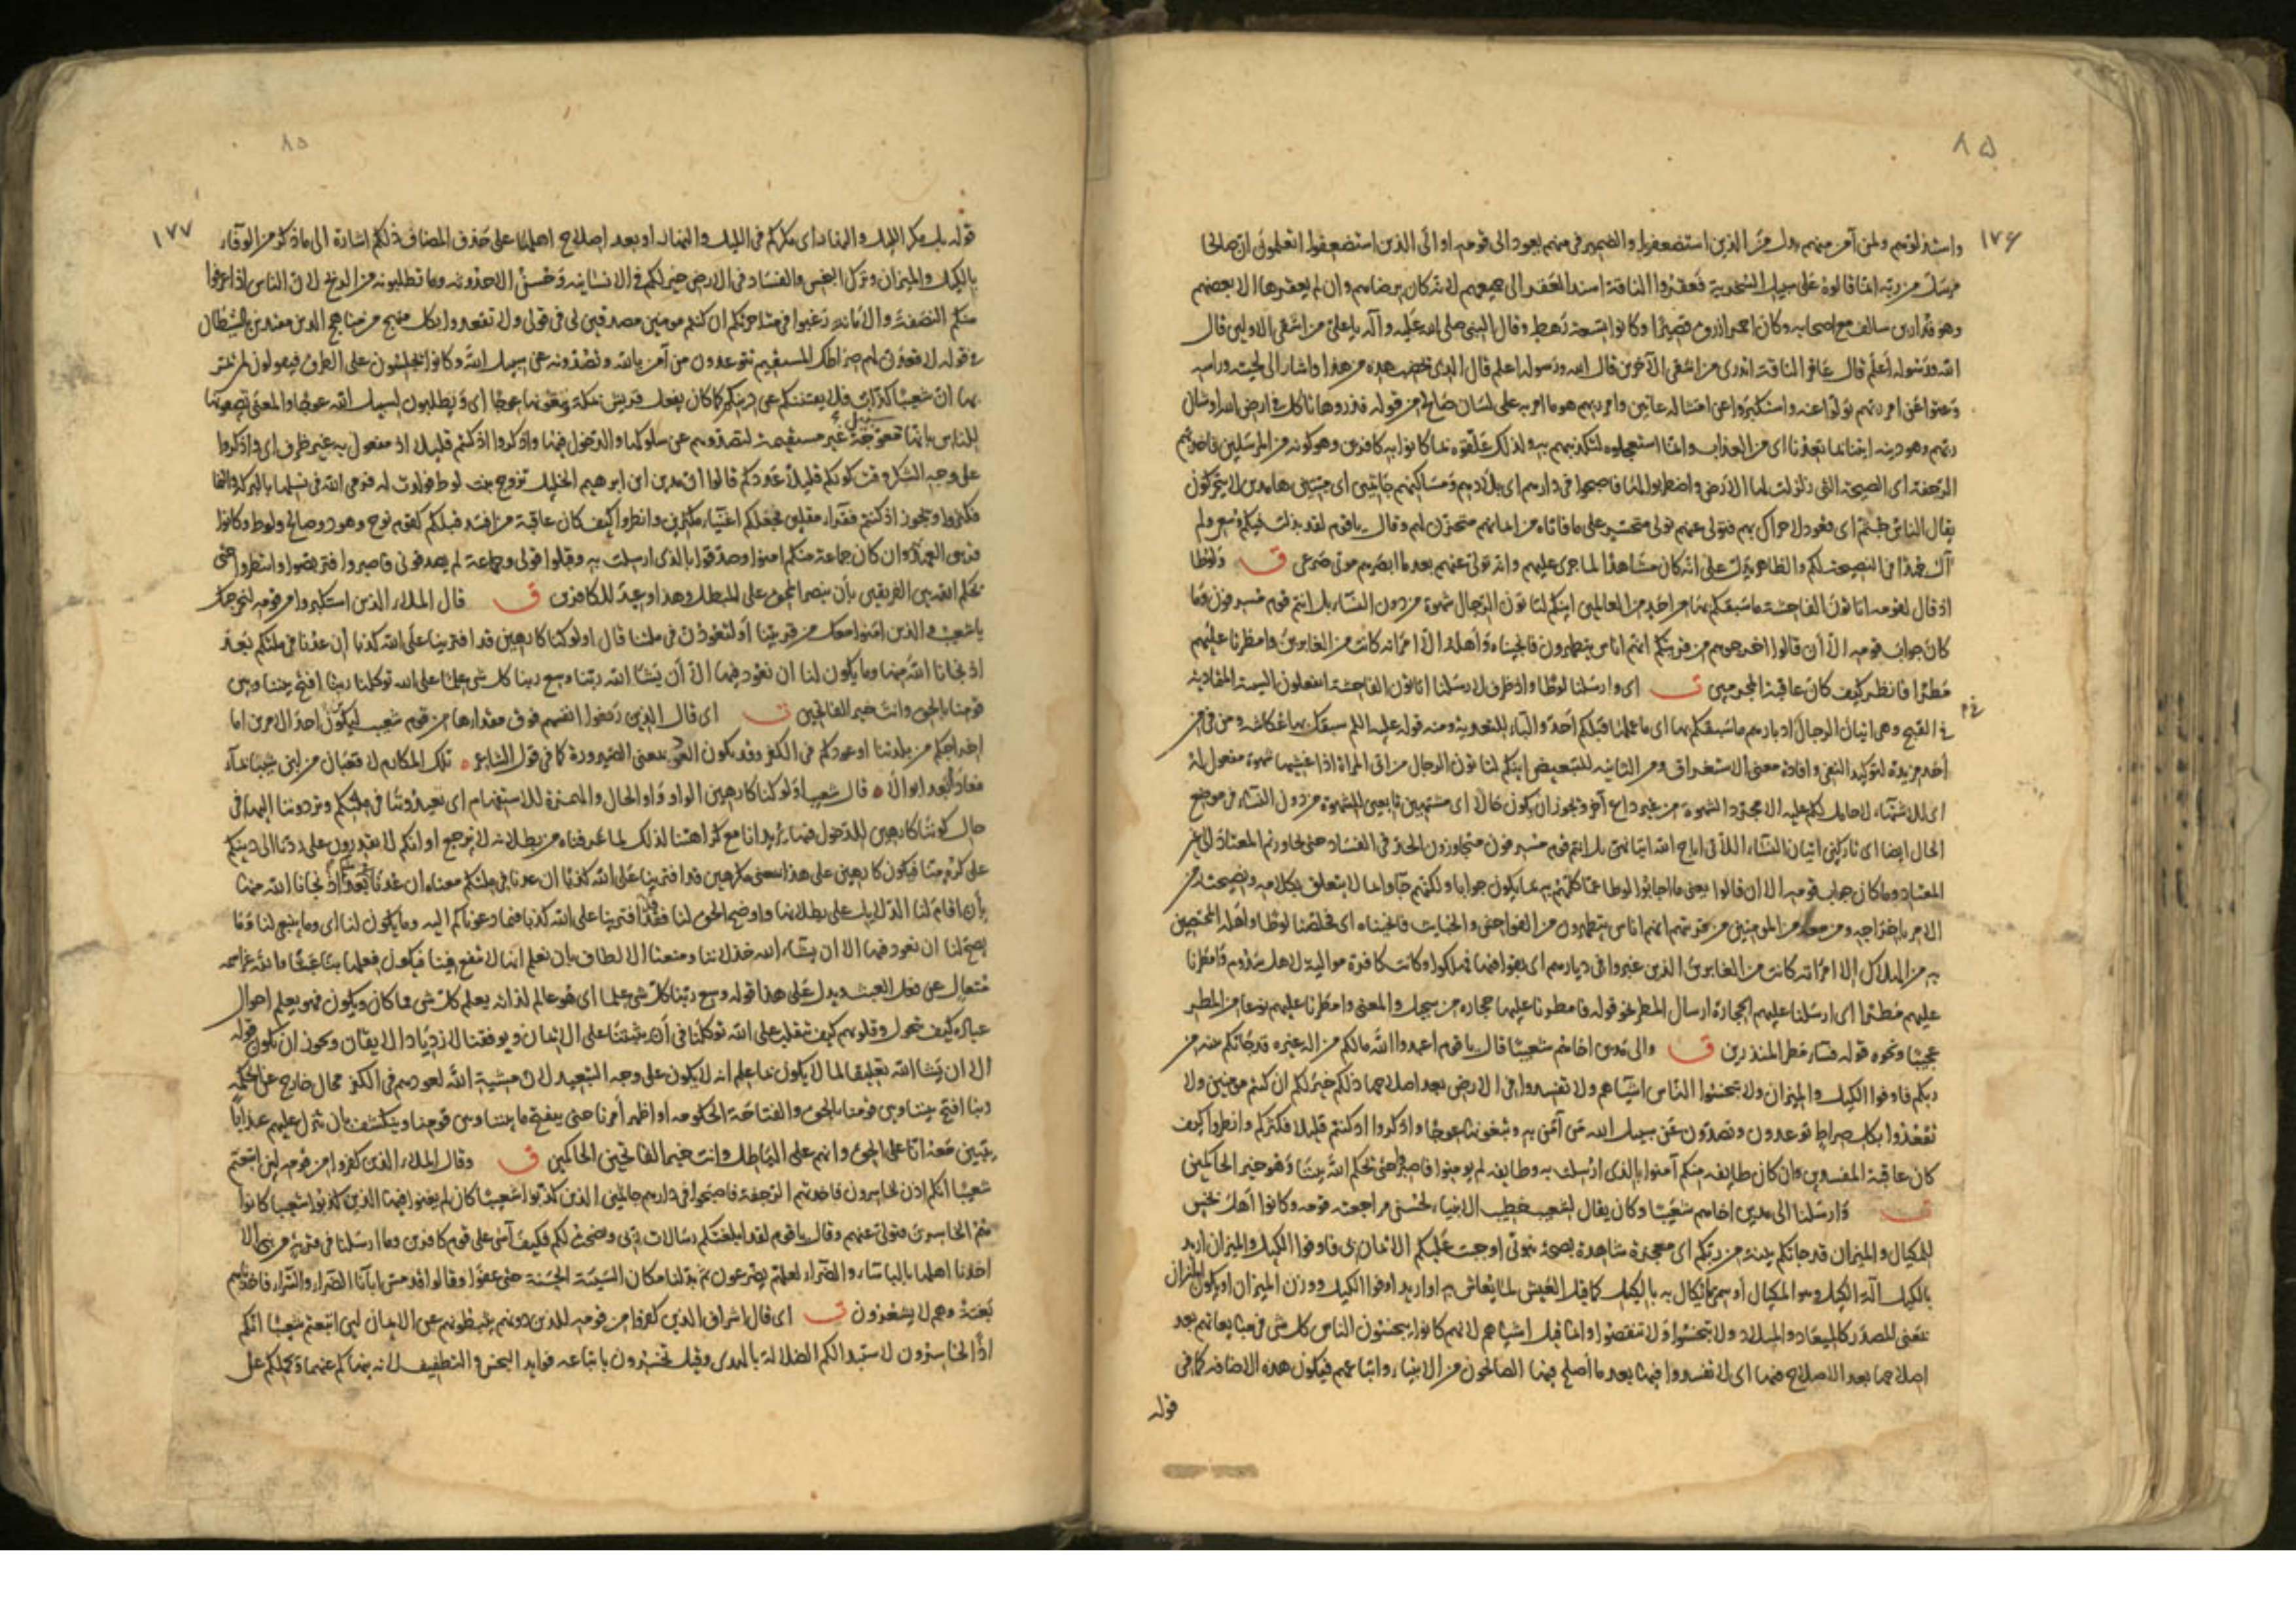 ٨٥
١٧۶
واستذلوهم ولمن آمن منهم بدل من الذين استضعفوا والضمير في منهم يعود الى قومه او الى الذين استضعفوا اتعلمون ان صالحا
مرسل من ربه انما قالوه على سبيل السخرية فعقروا الناقة اسند العقر الى جميعهم لانه كان برضاهم وان لم يعقرها الا بعضهم
وهو قدار بن سالف مع اصحابه وكان احمر ازرق قصيرا وكانوا تسعة رهط وقال النبي صلى الله عليه وآله يا علي من اشقى الاولين قال
الله ورسوله اعلم قال عاقر الناقة اتدري من اشقى الآخرين قال الله ورسوله اعلم قال الذي يخضب هذه من هذا واشار الى لحيته وراسه
وعتوا عن امر ربهم تولوا عنه واستكبروا عن امتثاله عاتين وامر ربهم هو ما امر به على لسان صالح من قوله فذروها تاكل في ارض الله او شأن
ربهم وهو دينه ايتنا بما تعدنا اى من العذاب وانما استعجلوه لتكذيبهم به ولذلك علقوه بما كانوا به كافرين وهو كونه من المرسلين فاخذتهم
الرجفة اى الصيحة التي زلزلت لها الارض واضطربوا لها فاصبحوا في دارهم اى بلادهم ومساكنهم جاثمين اى ميتين هامدين لا يتحركون
يقال الناس جثم اى قعود لا حراك بهم فتولى عنهم تولى متحسر على ما فاته من ايمانهم متحزن لهم وقال يا قوم لقد بذلت فيكم وسعي ولم
آل جهدا في النصيحة لكم والظاهر يدل على انه كان مشاهدا لما جرى عليهم وانه تولى عنهم بعد ما ابصرهم موتى صرعى ق ولوطا
اذ قال لقومه اتاتون الفاحشة ما سبقكم بها من احد من العالمين اينكم لتاتون الرجال شهوة من دون النساء بل انتم قوم مسرفون وما
كان جواب قومه الا أن قالوا اخرجوهم من قريتكم انهم اناس يتطهرون فانجيناه واهله الا امراته كانت من الغابرين وامطرنا عليهم
مطرا فانظر كيف كان عاقبة المجرمين ت اى وارسلنا لوطا واذ ظرف لارسلنا اتاتون الفاحشة اتفعلون السيئة المتمادية
في القبح وهي اتيان الرجال ادبارهم ما سبقكم بها اى ما عملها قبلكم احد والباء للتعدية ومنه قوله عليه السلم سبقك بها عكاشة ومن في من
احد مزيدة لتوكيد النفي وافادة معنى الاستغراق ومن الثانية للتبعيض اينكم لتاتون الرجال من اتى المراة اذا غشيها شهوة مفعول له
اى للاشتهاء لا حامل لكم عليه الا مجرد الشهوة من غير داع آخر ويجوز ان يكون حالا اى مشتهين تابعين للشهوة من دون النساء في موضع
الحال ايضا اى تاركين اتيان النساء اللاتي اباح الله اتيانهن بل انتم قوم مسرفون متجاوزون الحد في الفساد حتى تجاوزتم المعتاد الى غير
المعتاد وما كان جواب قومه الا ان قالوا يعني ما اجابوا لوطا عما كلمهم به بما يكون جوابا ولكنهم جاوا بما لا يتعلق بكلامه ونصيحته من
الامر باخراجه ومن معه من المومنين من قريتهم انهم اناس يتطهرون من الفواحش والخبايث فانجيناه اى فخلصنا لوطا واهله المختصين
به من الهلاك الا امراته كانت من الغابرين الذين غبروا في ديارهم اى بقوا فيها فهلكوا وكانت كافرة موالية لاهل سذوم وامطرنا
عليهم مطرا اى ارسلنا عليهم الحجارة ارسال المطر نحو قوله فامطرنا عليها حجارة من سجيل والمعنى وامطرنا عليهم نوعا من المطر
عجيبا ونحوه قوله فساء مطر المنذرين ق والى مدين اخاهم شعيبا قال يا قوم اعبدوا الله مالكم من اله غيره قد جاتكم بينة من
ربكم فاوفوا الكيل والميزان ولا تبخسوا الناس اشياءهم ولا تفسدوا في الارض بعد اصلاحها ذلكم خير لكم ان كنتم مومنين ولا
تقعدوا بكل صراط توعدون وتصدون عن سبيل الله من آمن به وتبغونها عوجا واذكروا اذ كنتم قليلا فكثركم وانظروا كيف
كان عاقبة المفسدين وان كان طايفة منكم آمنوا بالذى ارسلت به وطايفة لم يومنوا فاصبروا حتى يحكم الله بيننا وهو خير الحاكمين
ت وارسلنا الى مدين اخاهم شعيبا وكان يقال لشعيب خطيب الانبياء لحسن مراجعته قومه وكانوا اهل بخس
للمكيال والميزان قد جاتكم بينة من ربكم اى معجزة شاهدة بصحة نبوتي اوجبت عليكم الايمان بي فاوفوا الكيل والميزان اريد
بالكيل آلة الكيل وهو المكيال او سمي ما يكال به بالكيل كما قيل العيش لما يعاش به او اريد اوفوا الكيل ووزن الميزان او يكون الميزان
بمعنى المصدر كالميعاد والميلاد ولا تبخسوا ولا تنقصوا وانما قيل اشياهم لانهم كانوا يبخسون الناس كل شي في مبايعاتهم بعد
اصلاحها بعد الاصلاح فيها اى لا تفسدوا فيها بعد ما اصلح فيها الصالحون من الانبياء واتباعهم فيكون هذه الاضافة كما في
قوله
٨٥
١٧٧
قوله بل مكر الليل والنهار اى مكركم في الليل والنهار او بعد اصلاح اهلها على حذف المضاف ذلكم اشارة الى ما ذكر من الوفاء
بالكيل والميزان وترك البخس والفساد في الارض خير لكم في الانسانية وحسن الاحدوثة وما تطلبونه من الربح لان الناس اذا عرفوا
منكم النصفة والامانة رغبوا في متاجرتكم ان كنتم مومنين مصدقين لي في قولي ولا تقعدوا بكل منهج من مناهج الدين مقتدين بالشيطان
في قوله لاقعدن لهم صراطك المستقيم توعدون من آمن بالله وتصدونه عن سبيل الله وكانوا يجلسون على الطرق فيقولون لمن مر
بها ان شعيبا كذاب فلا يفتننكم عن دينكم كما كان يفعل قريش بمكة وتبغونها عوجا اى وتطلبون لسبيل الله عوجا والمعنى تصفونها
للناس بانها سبيل معوجة غير مستقيمة لتصدوهم عن سلوكها والدخول فيها واذكروا اذ كنتم قليلا اذ مفعول به غير ظرف اى واذكروا
على وجه الشكر وقت كونكم قليلا عددكم قالوا ان مدين ابن ابرهيم الخليل تزوج بنت لوط فولدت له فرمى الله في نسلها بالبركة والنما
فكثروا ويجوز اذ كنتم فقراء مقلين فجعلكم اغنياء مكثرين وانظروا كيف كان عاقبة من افسد قبلكم كقوم نوح وهود وصالح ولوط وكانوا
قريبي العهد وان كان جماعة منكم امنوا وصدقوا بالذى ارسلت به وقبلوا قولي وجماعة لم يصدقوني فاصبروا فتربصوا وانتظروا حتى
يحكم الله بين الفريقين بأن ينصر المحق على المبطل وهذا وعيد للكافرين ق قال الملاء الذين استكبروا من قومه لنخرجنك
يا شعيب والذين امنوا معك من قريتنا أو لتعودن في ملتنا قال اولو كنا كارهين قد افترينا على الله كذبا إن عدنا في ملتكم بعد
اذ نجانا الله منها وما يكون لنا ان نعود فيها الا أن يشا الله ربنا وسع ربنا كل شي علما على الله توكلنا ربنا افتح بيننا وبين
قومنا بالحق وانت خير الفاتحين ت اى قال الذين رفعوا انفسهم فوق مقدارها من قوم شعيب ليكونن احد الامرين اما
اخراجكم من بلدتنا او عودكم في الكفر وقد يكون العود بمعنى الصيرورة كما في قول الشاعر تلك المكارم لا قعبان من لبن شيبا بماء
فعادا بعد ابوالا قال شعيب اولو كنا كارهين الواو واو الحال والهمزة للاستفهام اى تعيدوننا في ملتكم وتردوننا اليها في
حال كوننا كارهين للدخول فيها يريد انا مع كراهتنا لذلك لما عرفناه من بطلانه لا نرجع او انكم لا تقدرون على ردنا الى دينكم
على كره منا فيكون كارهين على هذا بمعنى مكرهين قد افترينا على الله كذبا ان عدنا في ملتكم معناه ان عدنا في ملتكم بعد اذ نجانا الله منها
بأن اقام لنا الدلايل على بطلانها واوضح الحق لنا فقد افترينا على الله كذبا فيما دعوناكم اليه وما يكون لنا اى وما ينبغي لنا وما
يصح لنا ان نعود فيها الا ان يشاء الله خذلاننا ومنعنا الالطاف بان نعلم انها لا تنفع فينا فيكون فعلها بنا عبثا والله عز اسمه
متعال عن فعل العبث ويدل على هذا قوله وسع ربنا كل شي علما اى هو عالم لذاته يعلم كل شي مما كان ويكون فهو يعلم احوال
عباده كيف تحول وقلوبهم كيف تتقلب على الله توكلنا في أن يثبتنا على الايمان ويوفقنا لازدياد الايقان ويجوز ان يكون قوله
الا ان يشا الله تعليقا لما لا يكون بما علم انه لا يكون على وجه التبعيد لان مشية الله لعودهم في الكفر محال خارج عن الحكمة
ربنا افتح بيننا وبين قومنا بالحق والفتاحة الحكومة او اظهر أمرنا حتى ينفتح ما بيننا وبين قومنا وينكشف بان تنزل عليهم عذابا
يتبين معه انا على الحق وانهم على الباطل وانت خير الفاتحين الحاكمين ق وقال الملاء الذين كفروا من قومه لئن اتبعتم
شعيبا انكم اذن لخاسرون فاخذتهم الرجفة فاصبحوا في دارهم جاثمين الذين كذبوا شعيبا كان لم يغنوا فيها الذين كذبوا شعيبا كانوا
هم الخاسرين فتولى عنهم وقال يا قوم لقد ابلغتكم رسالات ربي ونصحت لكم فكيف آسى على قوم كافرين وما ارسلنا في قرية من نبي الا
اخذنا اهلها بالباساء والضراء لعلهم يضرعون ثم بدلنا مكان السيئة الحسنة حتى عفوا وقالوا قد مس اباءنا الضراء والسراء فاخذناهم
بغتة وهم لا يشعرون ت اى قال اشراف الذين كفروا من قومه للذين دونهم يثبطونهم عن الايمان لئن اتبعتم شعيبا انكم
اذًا لخاسرون لاستبدالكم الضلالة بالهدى وقيل تخسرون باتباعه فوايد البخس والتطفيف لانه ينهاكم عنهما ويحملكم على